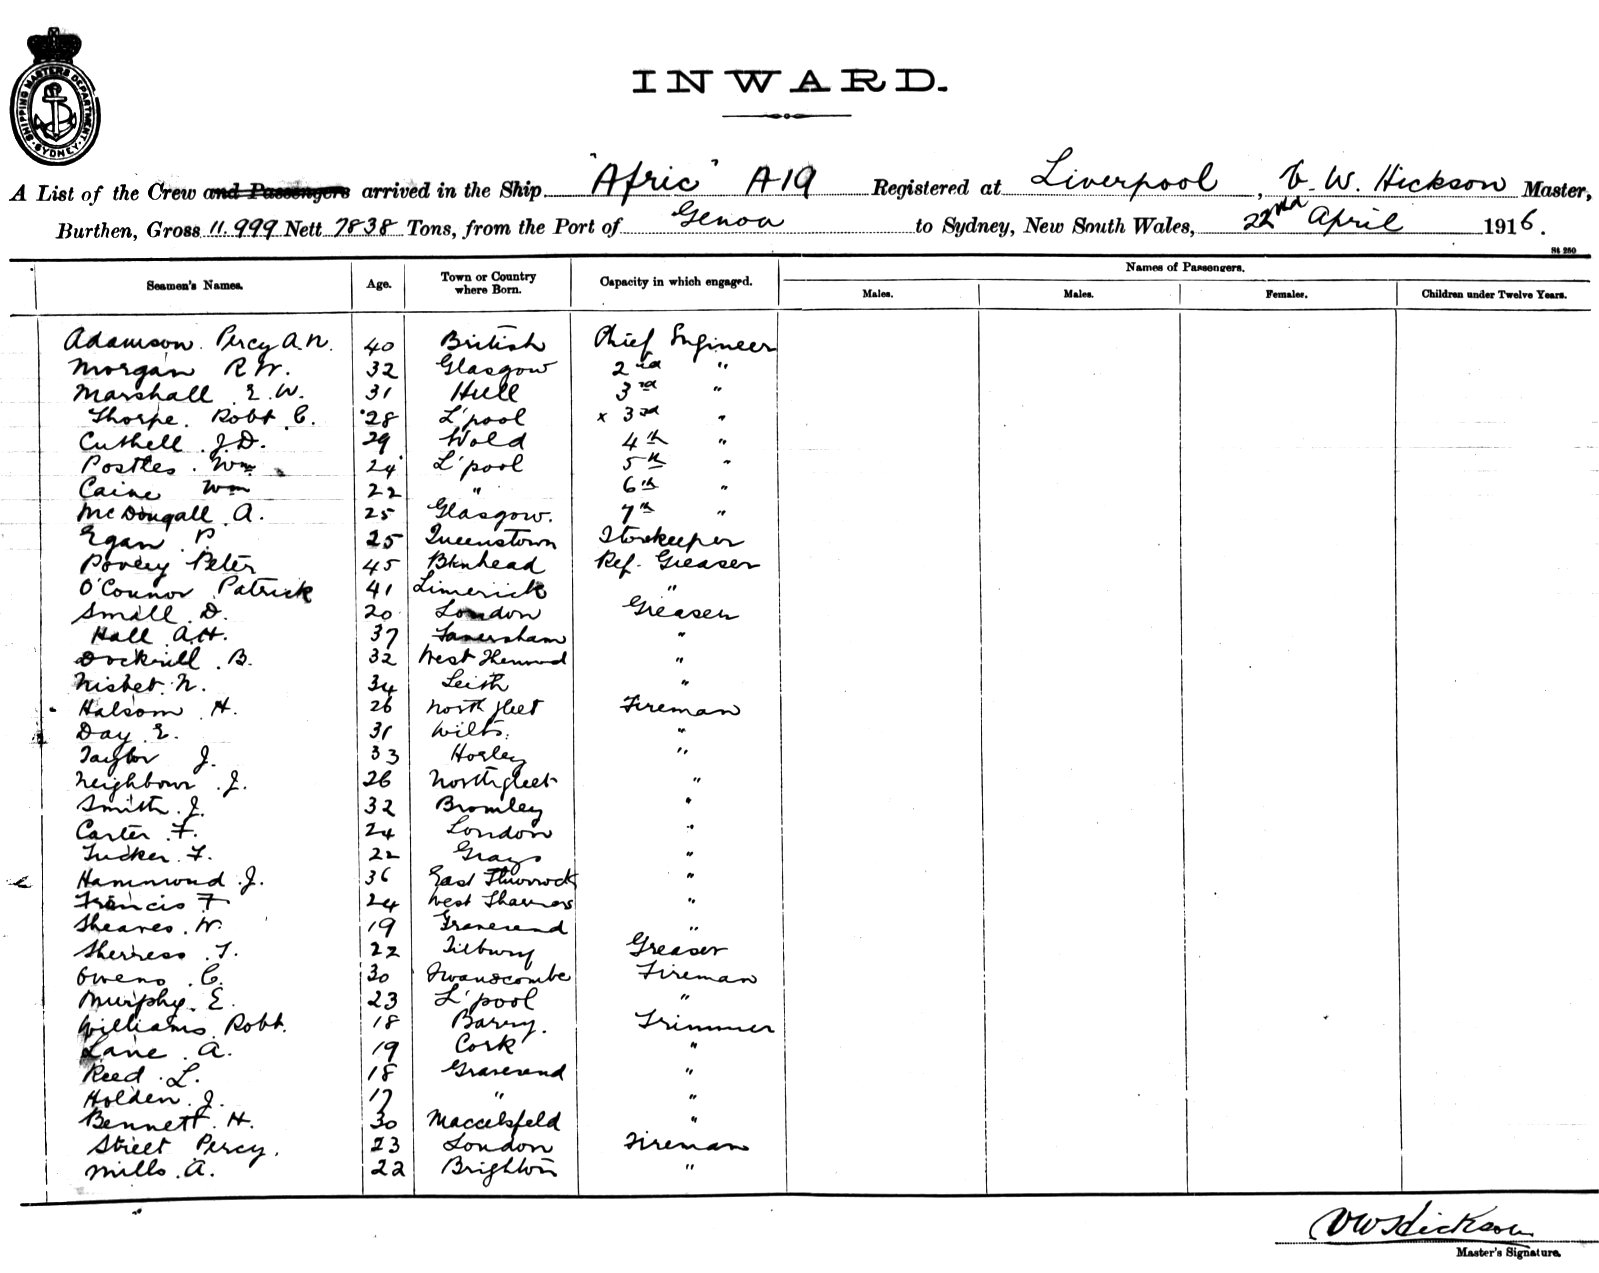 SHIPPING MASTERS DEPARTMENT
SYDNEY
INWARD.
A List of the Crew and Passengers arrived in the Ship "Afric" A19 Registered at Liverpool, V. W. Hickson Master,
Burthen, Gross 11.999 Nett 7838 Tons, from the Port of Genoa to Sydney, New South Wales, 22nd April 1916.
St 250
Seamen's Names. Age. Town or Country where Born. Capacity in which engaged. Names of Passengers.
Males. Males. Females. Children under Twelve Years.
Adamson. Percy A.N. 40 British Chief Engineer
Morgan R W. 32 Glasgow 2nd "
Marshall E. W. 31 Hull 3rd "
Thorpe. Robt C. 28 L'pool x 3rd "
Cuthell J.D. 29 Wold 4th "
Postles. Wm 24 L'pool 5th "
Caine Wm 22 " 6th "
McDougall A. 25 Glasgow. 7th "
Egan P. 25 Queenstown Storekeeper
Povey Peter 45 Bknhead Ref. Greaser
O'Connor Patrick 41 Limerick "
Small D. 20 London Greaser
Hall A.H. 37 "
Dockrill. B. 32 West "
Nisbet. N. 34 Leith "
Halsom H. 26 Northfleet Fireman
Day E. 31 Wilts. "
Taylor J. 33 Horley "
Neighbour J. 26 Northfleet "
Smith. J. 32 Bromley "
Carter F. 24 London "
Tucker. F. 22 Grays "
Hammond J. 36 East Thurrock "
Francis F 24 West "
Sheaves. W. 19 Gravesend "
Sherress. T. 22 Tilbury Greaser
Owens C. 30 Swanscombe Fireman
Murphy. E. 23 L'pool "
Williams Robt. 18 Barry. Trimmer
Lane A. 19 Cork "
Reed L. 18 Gravesend "
Holden. J. 17 " "
Bennett H. 30 Maccelsfeld "
Street Percy. 23 London Fireman
Mills. A. 22 Brighton "
VW Hickson
Master's Signature.